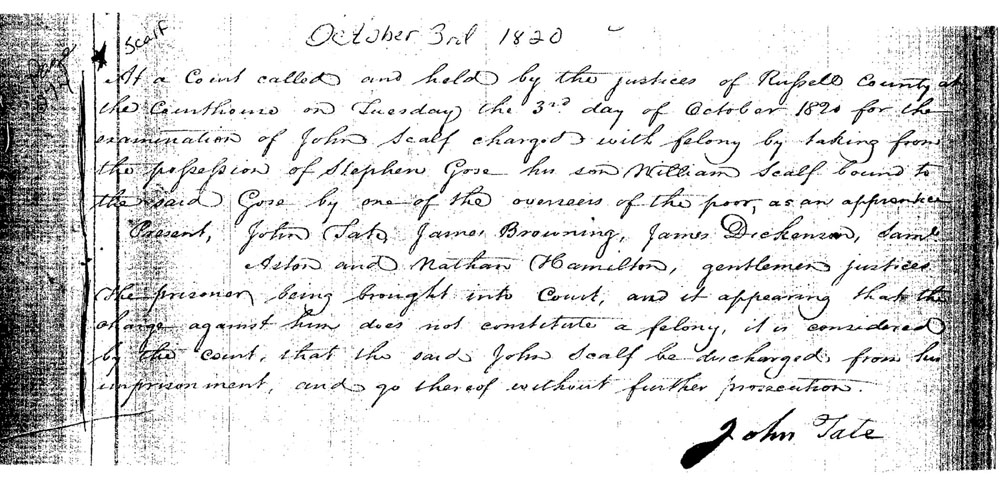 October 3rd 1820
Scarf
At a Court called and held by the justices of Russell County at
the Courthouse on Tuesday the 3rd day of October 1820 for the
examination of John Scalf charged with felony by taking from
the possession of Stephen Gose his son William Scalf bound to
the said Gose by one of the overseers of the poor, as an apprentice
Present, John Tate, James Browning, James Dickenson, Saml.
Aston and Nathan Hamilton, gentlemen justices
The prisoner being brought into Court, and it appearing that the
charge against him does not constitute a felony, it is considered
by the court, that the said John Scalf be discharged from his
imprisonment, and go thereof without further prosecution.
John Tate